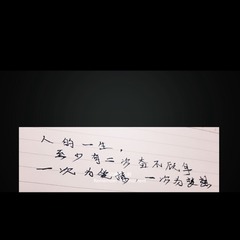 人的一生，
至少有二次奋不顾身
一次为爱情，一次为